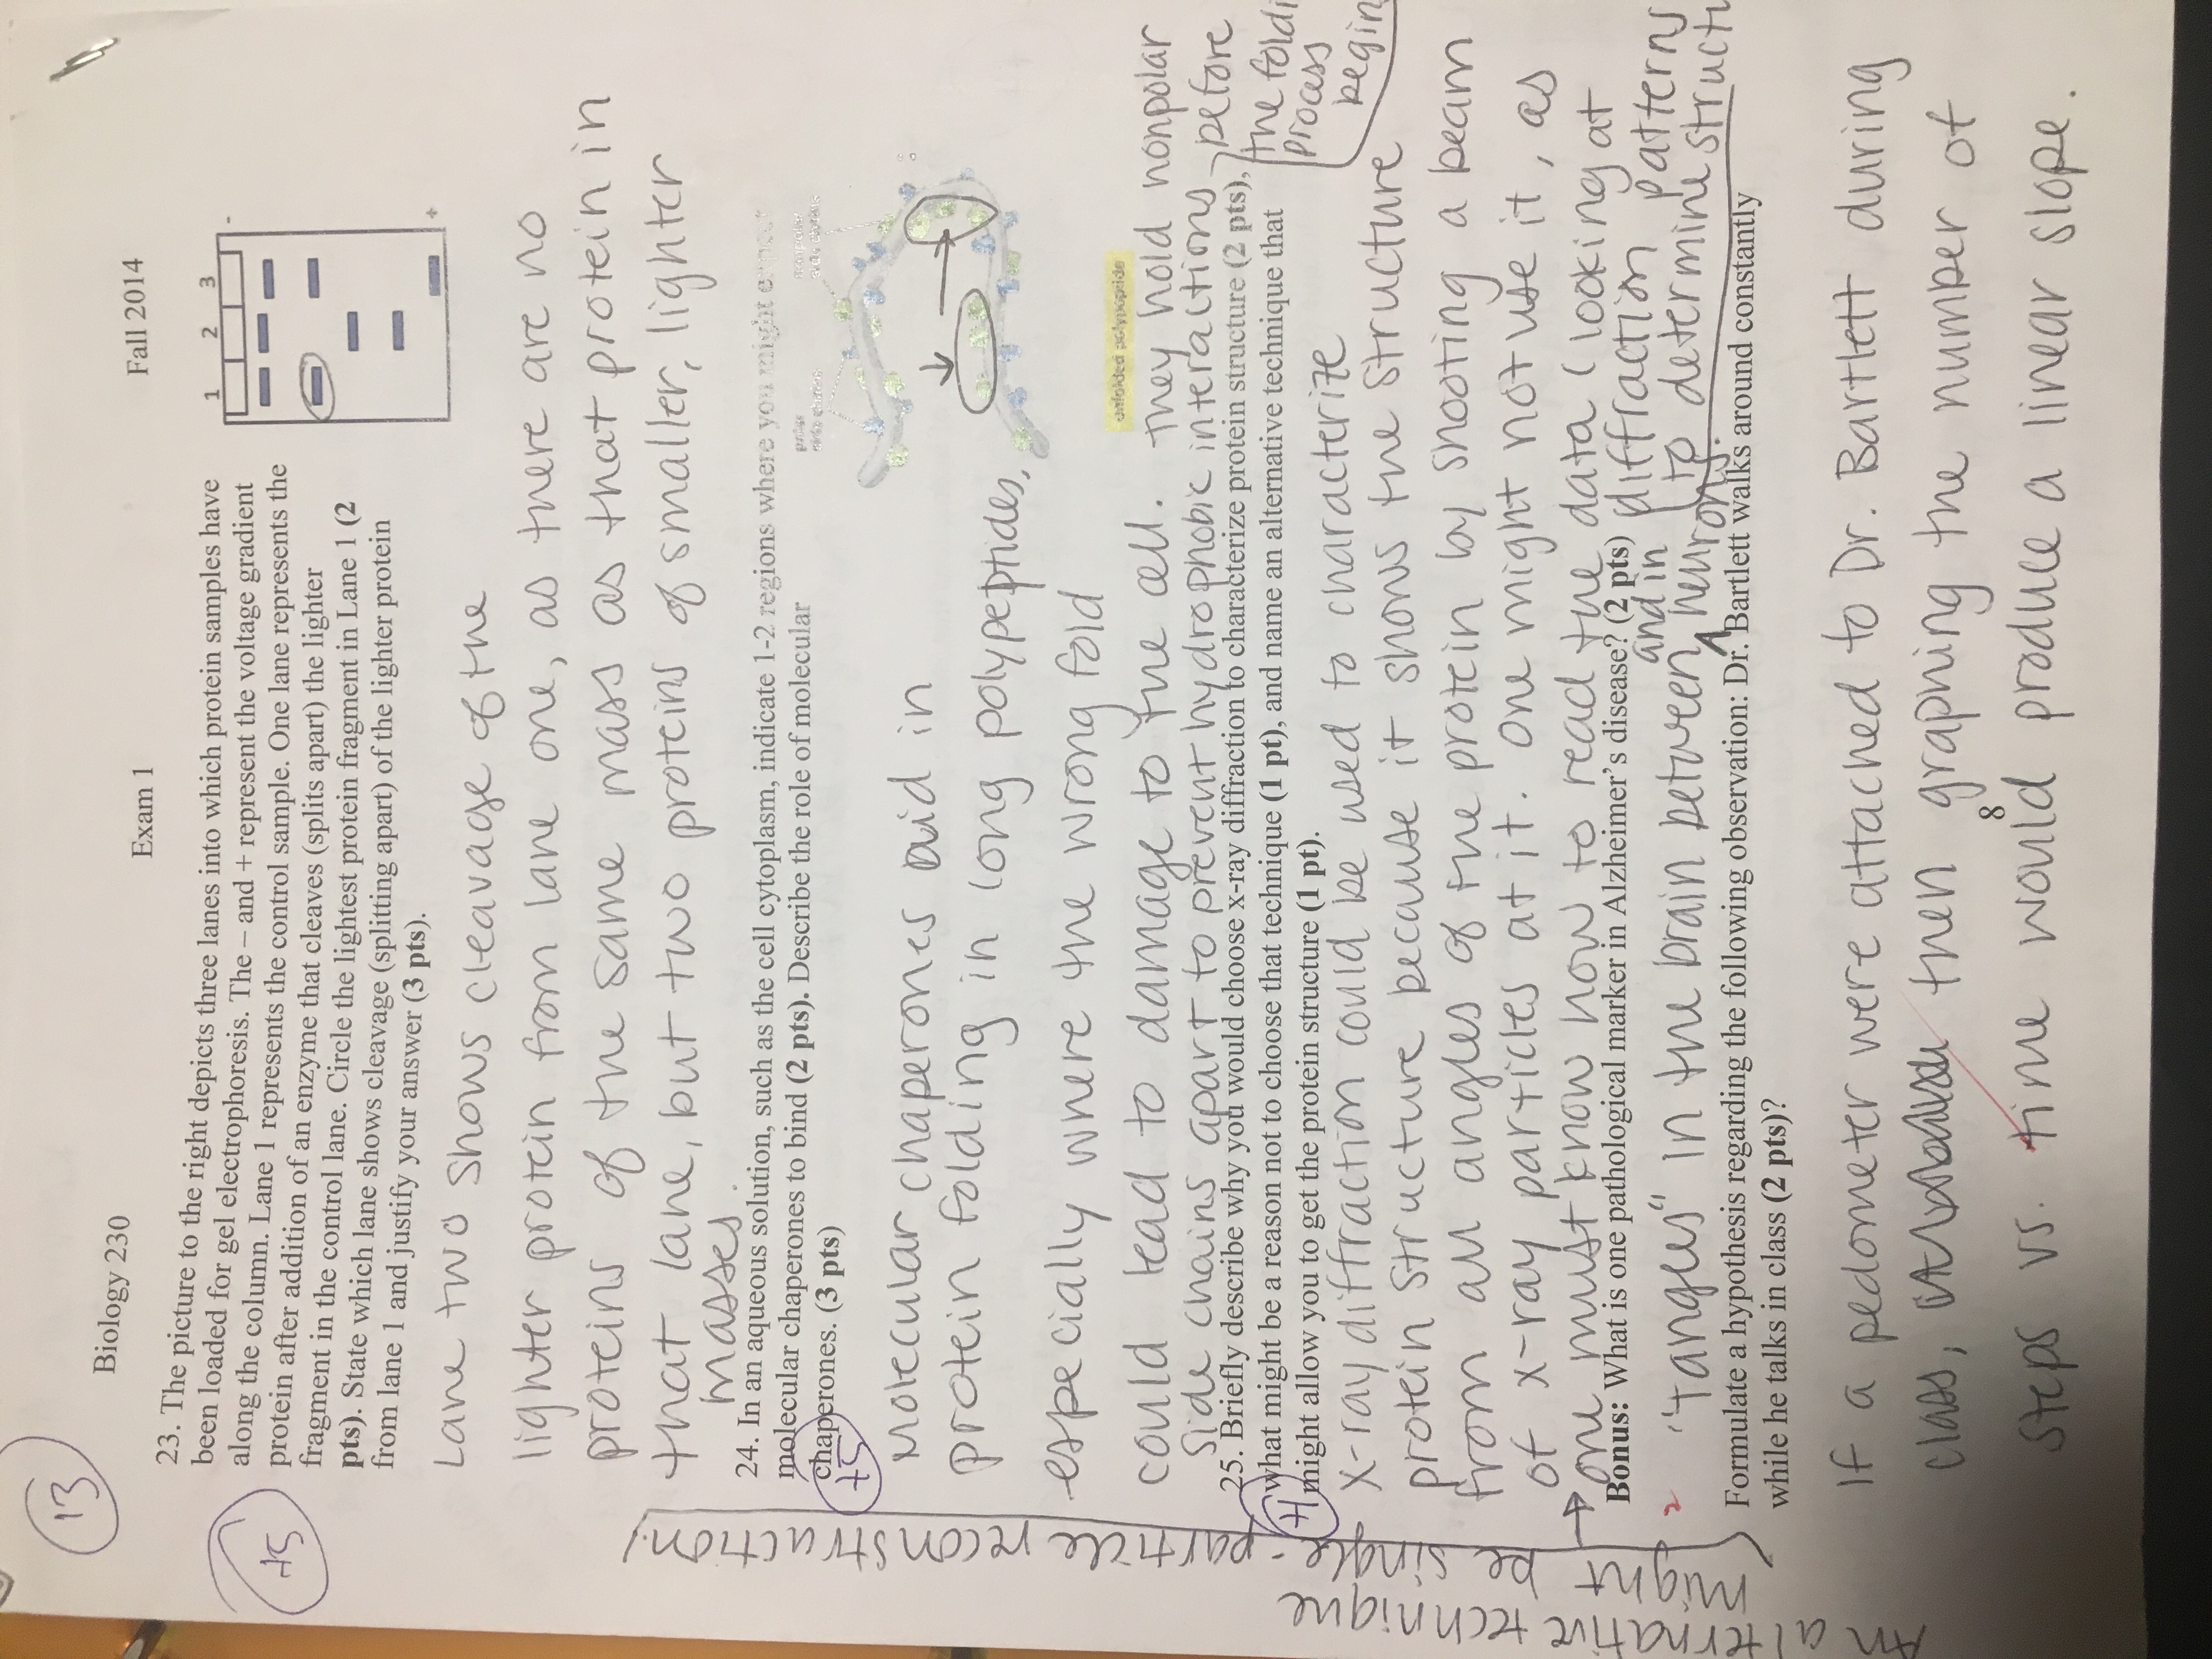 13
Biology 230
Exam 1
Fall 2014
+5
23. The picture to the right depicts three lanes into which protein samples have
been loaded for gel electrophoresis. The – and + represent the voltage gradient
along the column. Lane 1 represents the control sample. One lane represents the
protein after addition of an enzyme that cleaves (splits apart) the lighter
fragment in the control lane. Circle the lightest protein fragment in Lane 1 (2
pts). State which lane shows cleavage (splitting apart) of the lighter protein
from lane 1 and justify your answer (3 pts).
1 2 3
-
+
Lane two shows cleavage of the
lighter protein from lane one, as there are no
proteins of the same mass as that protein in
that lane, but two proteins of smaller, lighter
masses.
24. In an aqueous solution, such as the cell cytoplasm, indicate 1-2 regions where you might expect
molecular chaperones to bind (2 pts). Describe the role of molecular
chaperones. (3 pts)
+5
polar side chains
nonpolar side chains
unfolded polypeptide
Molecular chaperones aid in
protein folding in long polypeptides,
especially where the wrong fold
could lead to damage to the cell. They hold nonpolar
side chains apart to prevent hydrophobic interactions before
the foldi
process
begin
25. Briefly describe why you would choose x-ray diffraction to characterize protein structure (2 pts),
what might be a reason not to choose that technique (1 pt), and name an alternative technique that
might allow you to get the protein structure (1 pt).
X-ray diffraction could be used to characterize
protein structure because it shows the structure
from all angles of the protein by shooting a beam
of x-ray particles at it. One might not use it, as
one must know how to read the data (looking at
diffraction patterns
to determine structu
An alternative technique
might be single-particle reconstruction.
Bonus: What is one pathological marker in Alzheimer's disease? (2 pts)
2
"tangles" in the brain between and in neurons.
Formulate a hypothesis regarding the following observation: Dr. Bartlett walks around constantly
while he talks in class (2 pts)?
If a pedometer were attached to Dr. Bartlett during
class, then graphing the number of
8
steps vs. time would produce a linear slope.